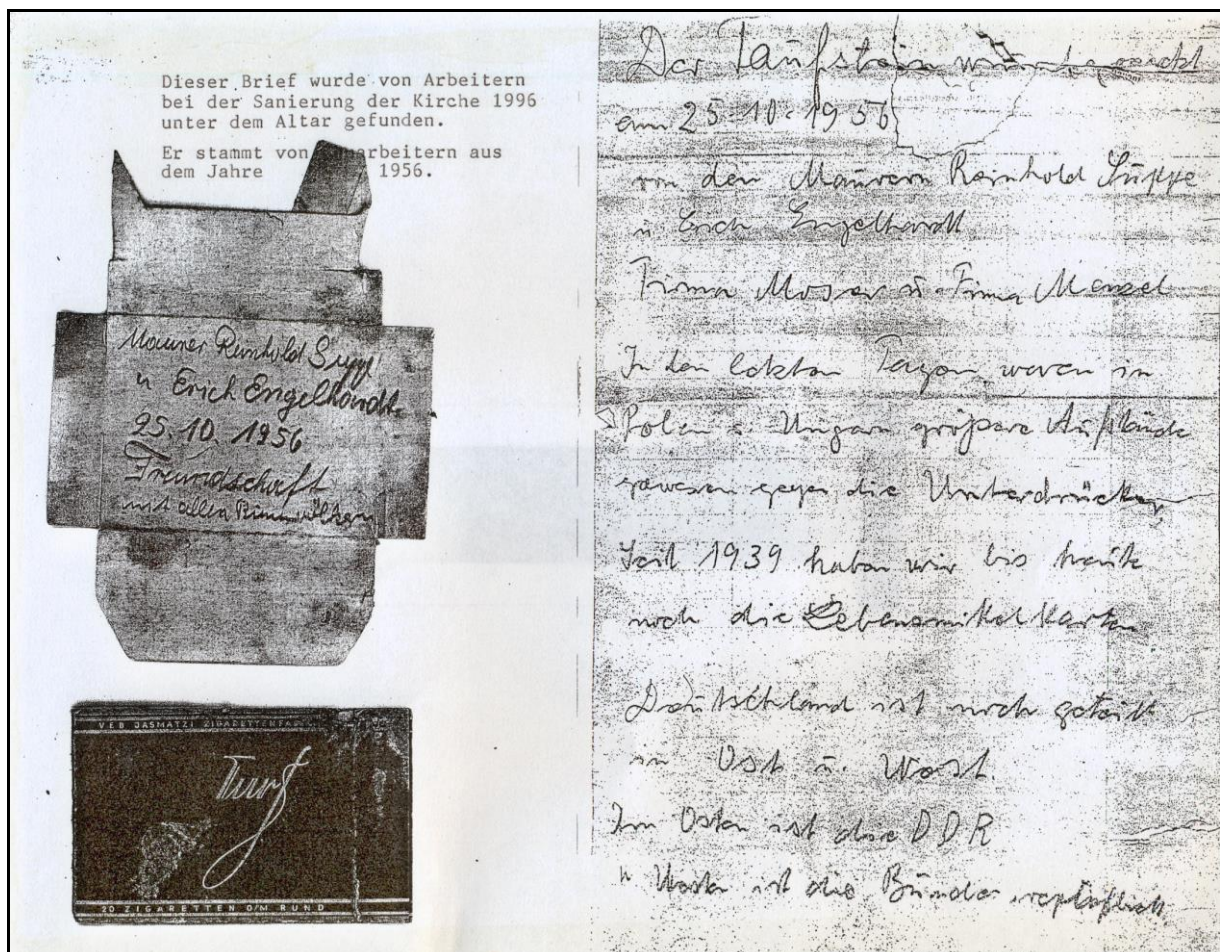 Dieser Brief wurde von Arbeitern
bei der Sanierung der Kirche 1996
unter dem Altar gefunden.
Er stammt von arbeitern aus
dem Jahre 1956.
Maurer Reinhold Supp
u Erich Engelhardt
25. 10. 1956
Freundschaft
mit allen
VEB JASMATZI ZIGARETTENFABRIK
Turf
20 ZIGARETTEN O/M RUND
Der Taufstein
am 25.10.1956
von den Maurern Reinhold Suppe
u Erich Engelhardt
Firma Moser u. Firma Menzel
In den letzten Tagen waren in
Polen u. Ungarn größere Aufstände
gewesen gegen die Unterdrücker
Seit 1939 haben wir bis heute
noch die Lebensmittelkarten
Deutschland ist noch geteilt
in Ost u. West.
Im Osten ist die DDR
" Westen ist die Bundesrepublick